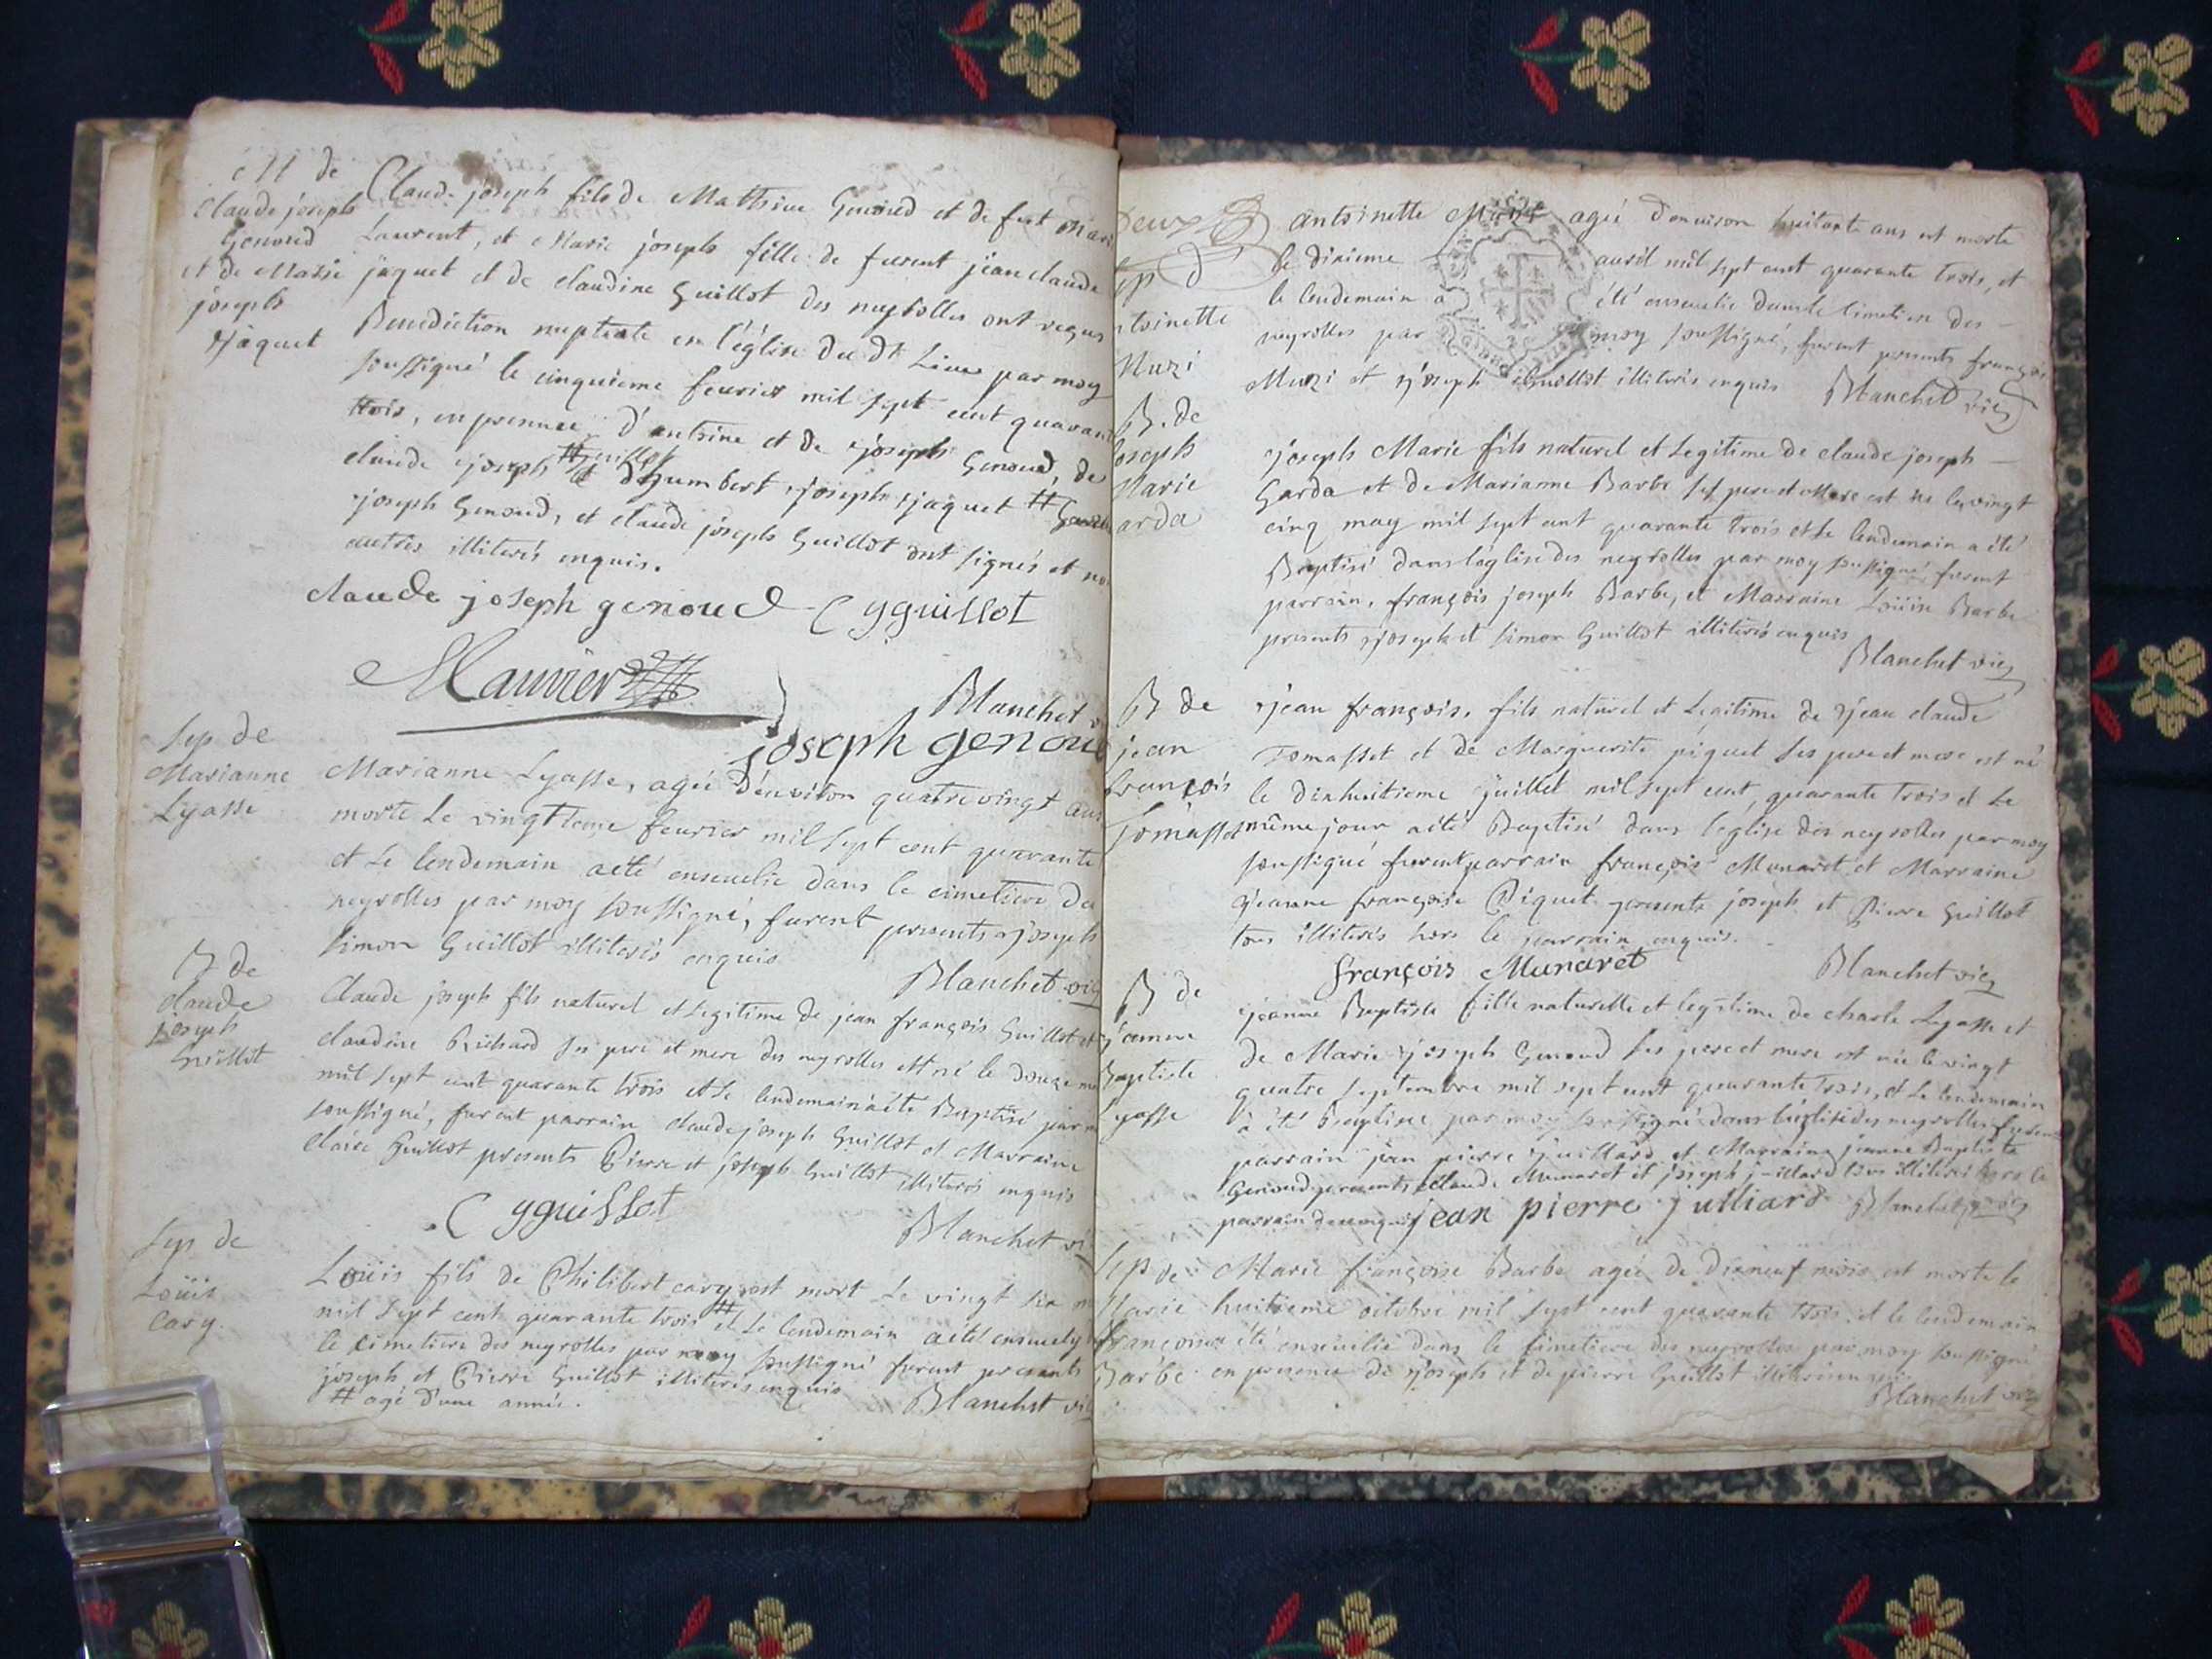 M de
Claude joseph
Genoud
et de Marie
joseph
Jaquet
Claude joseph fils de Mathieu Genoud et de feüe
Laurent, et Marie joseph fille de furent jean claude
jaquet et de claudine Guillot des neyrolles ont reçus
Benediction nuptiale en l'église du dt Lieu par moy
soussigné le cinquieme feurier mil sept cent
trois, en presence d'antoine et de joseph Genoud, de
claude joseph d'humbert joseph jaquet #
joseph Genoud, et claude joseph Guillot ont signés et
autres illiterés enquis.
claude joseph genoud C y guillot
Maunier
Blanchet
joseph genou
Sep de
Marianne
Lyasse
Marianne Lyasse, agée d'enuiron quatre vingt ans
morte Le vingtieme feurier mil sept cent quarante
et Le lendemain a eté enseuelie dans le cimetiere des
neyrolles par moy soussigné, furent presents joseph
simon Guillot illiterés enquis
Blanchet vic
B de
claude
joseph
Guillot
Claude joseph fils naturel et Legitime de jean françois Guillot et
claudine Richard ses pere et mere des neyrolles est né le douze
mil sept cent quarante trois et Le lendemain a été Baptisé par
soussigné, furent parrain claude joseph Guillot et Marraine
Guillot presents Pierre et joseph Guillot illiterés enquis
C y guillot
Blanchet vi
Sep de
Loüis
Cary.
Loüis fils de Philibert cary est mort Le vingt six
mil sept cent quarante trois # et Le lendemain a eté enseuely
le cimetiere des neyrolles par moy soussigné furent presents
joseph et Pierre Guillot illiterés enquis
# agé d'une année.
Blanchet vic
Deux
Sep d
ntoinette
Muzi
antoinette Muzi agée d'enuiron huitante ans est morte
le dixieme auril mil sept cent quarante trois, et
le lendemain a été enseuelie dans le cimetiere des
neyrolles par moy soussigné, furent presents françois
Muzi et joseph Guillot illiterés enquis Blanchet vic
B. de
joseph
Marie
arda
joseph Marie fils naturel et Legitime de claude joseph
Garda et de Marianne Barbe ses pere et Mere est né le vingt
cinq may mil sept cent quarante trois et Le lendemain a été
Baptisé dans l'église des neyrolles par moy soussigné furent
parrain, françois joseph Barbe, et Marraine Loüise Barbe
presents joseph et simon Guillot illiterés enquis
Blanchet vic
B de
jean
françois
Tomasset
jean françois, fils naturel et Legitime de jean claude
Tomasset et de Marguerite piquet ses pere et mere est né
le dixhuitieme juillet mil sept cent, quarante trois et Le
même jour a été Baptisé dans l'église des neyrolles par moy
soussigné furent parrain françois Munaret et Marraine
jeanne françoise Piquet presents joseph et Pierre Guillot
tous illiterés hors le parrain enquis.
françois Munaret
Blanchet vic
B de
jeanne
Baptiste
Lyasse
jeanne Baptiste fille naturelle et legitime de charle Lyasse et
de Marie joseph Genoud ses pere et mere est née le vingt
quatre septembre mil sept cent quarante trois, et Le lendemain
a été Baptisée par moy soussigné dans l'église des neyrolles furent
parrain jean pierre juillard et Marraine jeanne Baptiste
Genoud presents claude Munaret et joseph tous illiterés hors le
parrain de ce enquis jean pierre julliard Blanchet vic
Sep de
Marie
françoise
Barbe
Marie françoise Barbe agée de dixneuf mois est morte le
huitieme octobre mil sept cent quarante trois et le lendemain
a été enseuelie dans le cimetiere des neyrolles par moy soussigné
en presence de joseph et de pierre Guillot illiterés enquis
Blanchet vic